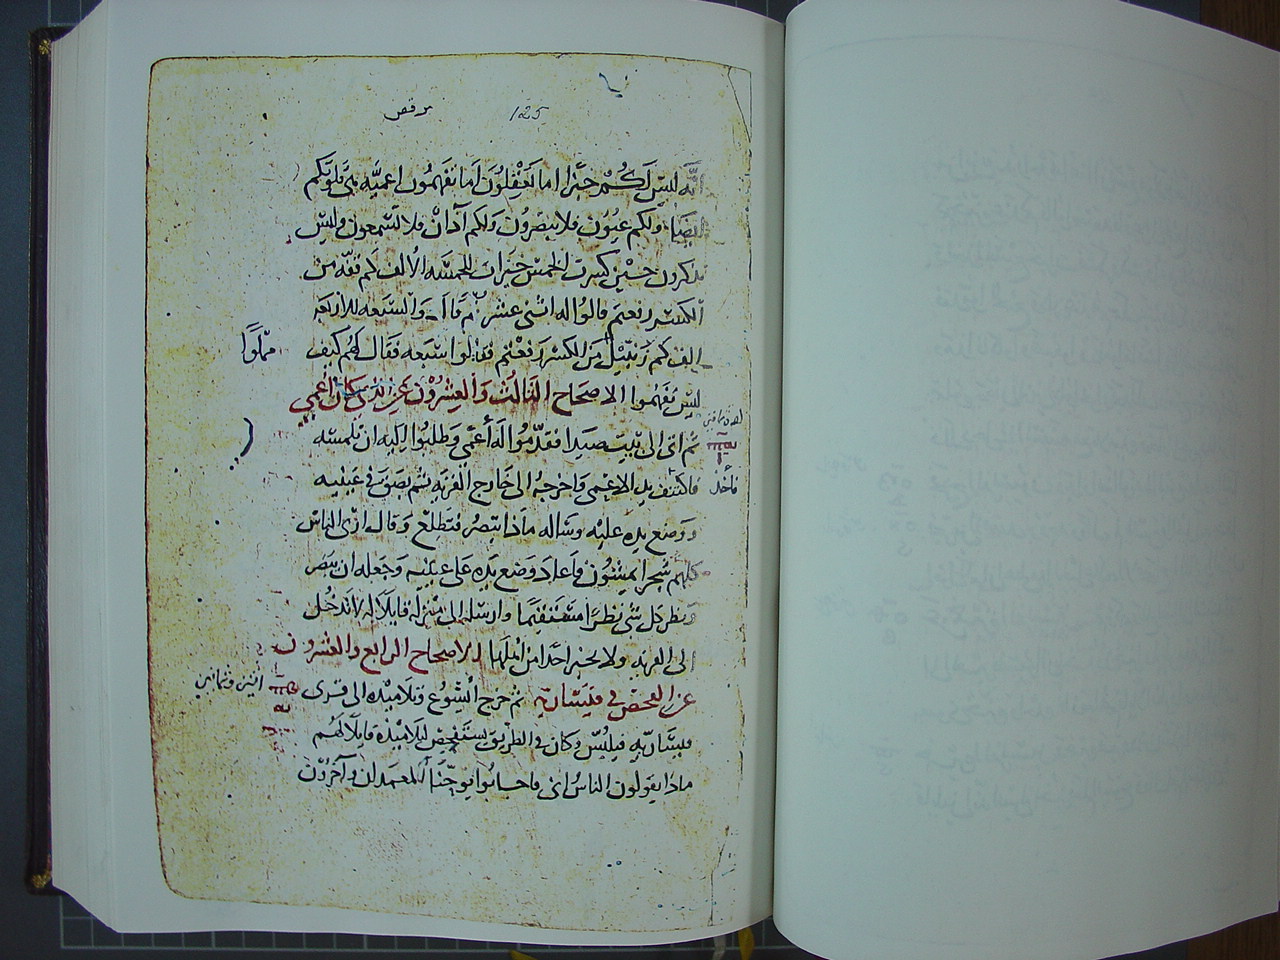 مرقص
125
انّه ليس لكم خبزا اما تعقلون اما تفهمون اعميّه هي قلوبكم
ولكم عيون فلا تبصرون ولكم آذان فلا تسمعون وليس
تذكرون حين كسرت الخمس خبزات للخمسه الألف كم قفّه من
الكسر رفعتم قالوا له اثني عشر ثم قال والسبعه للاربعه
الف كم زنبيل من الكسر رفعتم فقالوا سبعه فقال لهم كيف
مملوا
ليس تفهموا الاصحاح الثالث والعشرون عن الذى كان اعمى
ثم اتى الى بيت صيدا فقدّموا له أعمى وطلبوا اليه ان يلمسه
فأخذ
يد الاعمى واخرجه الى خارج القريه ثم بصق في عينيه
ووضع يده عليه وساله ماذا تبصر فتطلع وقال ارى الناس
كلهم شجرا يمشون فاعاد ووضع يده على عينيه وجعله ان يبصر
ونظر كل شى نظرا مستقيما وارسله الى منزله قايلا له لا تدخل
الى القريه ولا تخبر احدا من اهلها الاصحاح الرابع والعشرون
عن الفحص في قيسارية ثم خرج ايشوع وتلاميذه الى قرى
اثنين وثمانين
قيساريه فيلبس وكان في الطريق يستفحص تلاميذه قايلا لهم
ماذا يقولون الناس انى فاجابوا يوحنّا المعمدان وآخرون